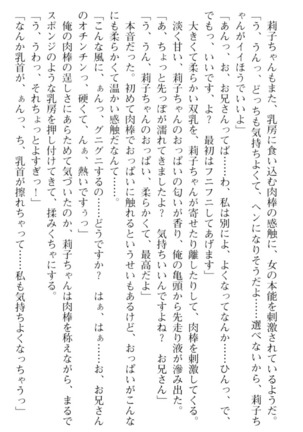 莉子ちゃんもまた、乳房に食い込む肉棒の感触に、女の本能を刺激されているようだ。
「う、うんっ、どっちも気持ちよくて、ヘンになりそうだよ……選べないから、莉子ち
ゃんがイイほうでいいよ」
「あんっ、お、お兄さんってば……わ、私は別によ、よくなってなんか……ひんっ、で、
でもっ、いいです、よ？　最初はフニフニしてあげます」
大きくて柔らかな双乳を、莉子ちゃんが寄せたり離したりして、肉棒を刺激してくる。
淡く甘い、莉子ちゃんのおっぱいの匂いが香り、俺の亀頭から先走り液が滲み出た。
「あ、ちょっと先っぽが濡れてきましたよ？　気持ちいいんですよね？　お兄さん」
「う、うんっ、莉子ちゃんのおっぱい、柔らかくて、最高だよ」
本音だった。初めて肉棒でおっぱいに触れるというせいもあるけど、おっぱいがこんな
にも柔らかくて温かい感触だなんて……。
「こんな風に、ぁんっ、グニグニするの……どうですか？　はぁ、はぁっ……お、お兄さん
のオチンチンっ、硬くて、んぁ、熱いですぅっ」
俺の肉棒の逞しさにあらためて気づいたのか、莉子ちゃんは肉棒を称えながら、まるで
スポンジのような乳房を押し付けてきて、揉みくちゃにする。
「う、うわっ、それちょっとよすぎっ……！」
「なんか乳首が、ぁんっ、ち、乳首が擦れちゃって……私も気持ちよくなっちゃうっ」